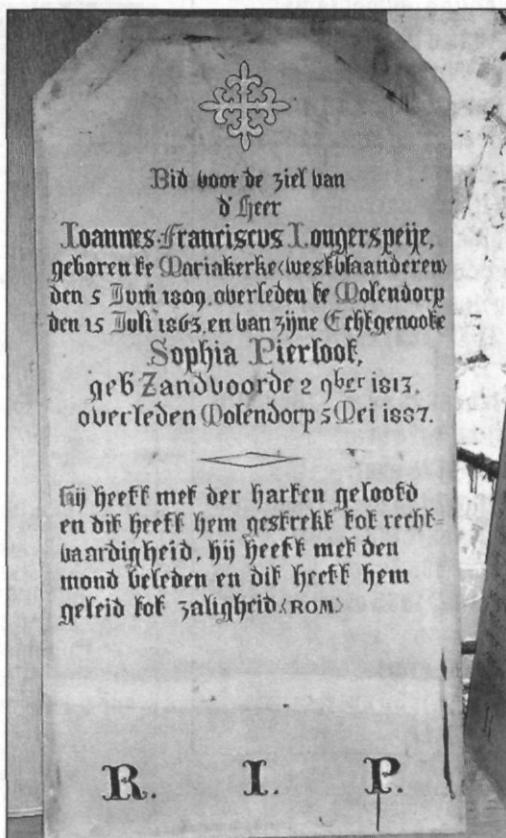 Bid voor de ziel van
d'Heer
Ioannes-Franciscvs Lougerspeije,
geboren te Mariakerke (westvlaanderen)
den 5 Iuni 1809, overleden te Molendorp
den 15 Iuli 1863, en van zijne Echtgenoote
Sophia Pierloot,
geb Zandvoorde 2 9ber 1813.
overleden Molendorp 5 Mei 1887.
hij heeft met der harten geloofd
en dit heeft hem gestrekt tot recht=
vaardigheid, hij heeft met den
mond beleden en dit heeft hem
geleid tot zaligheid. (ROM)
R. I. P.